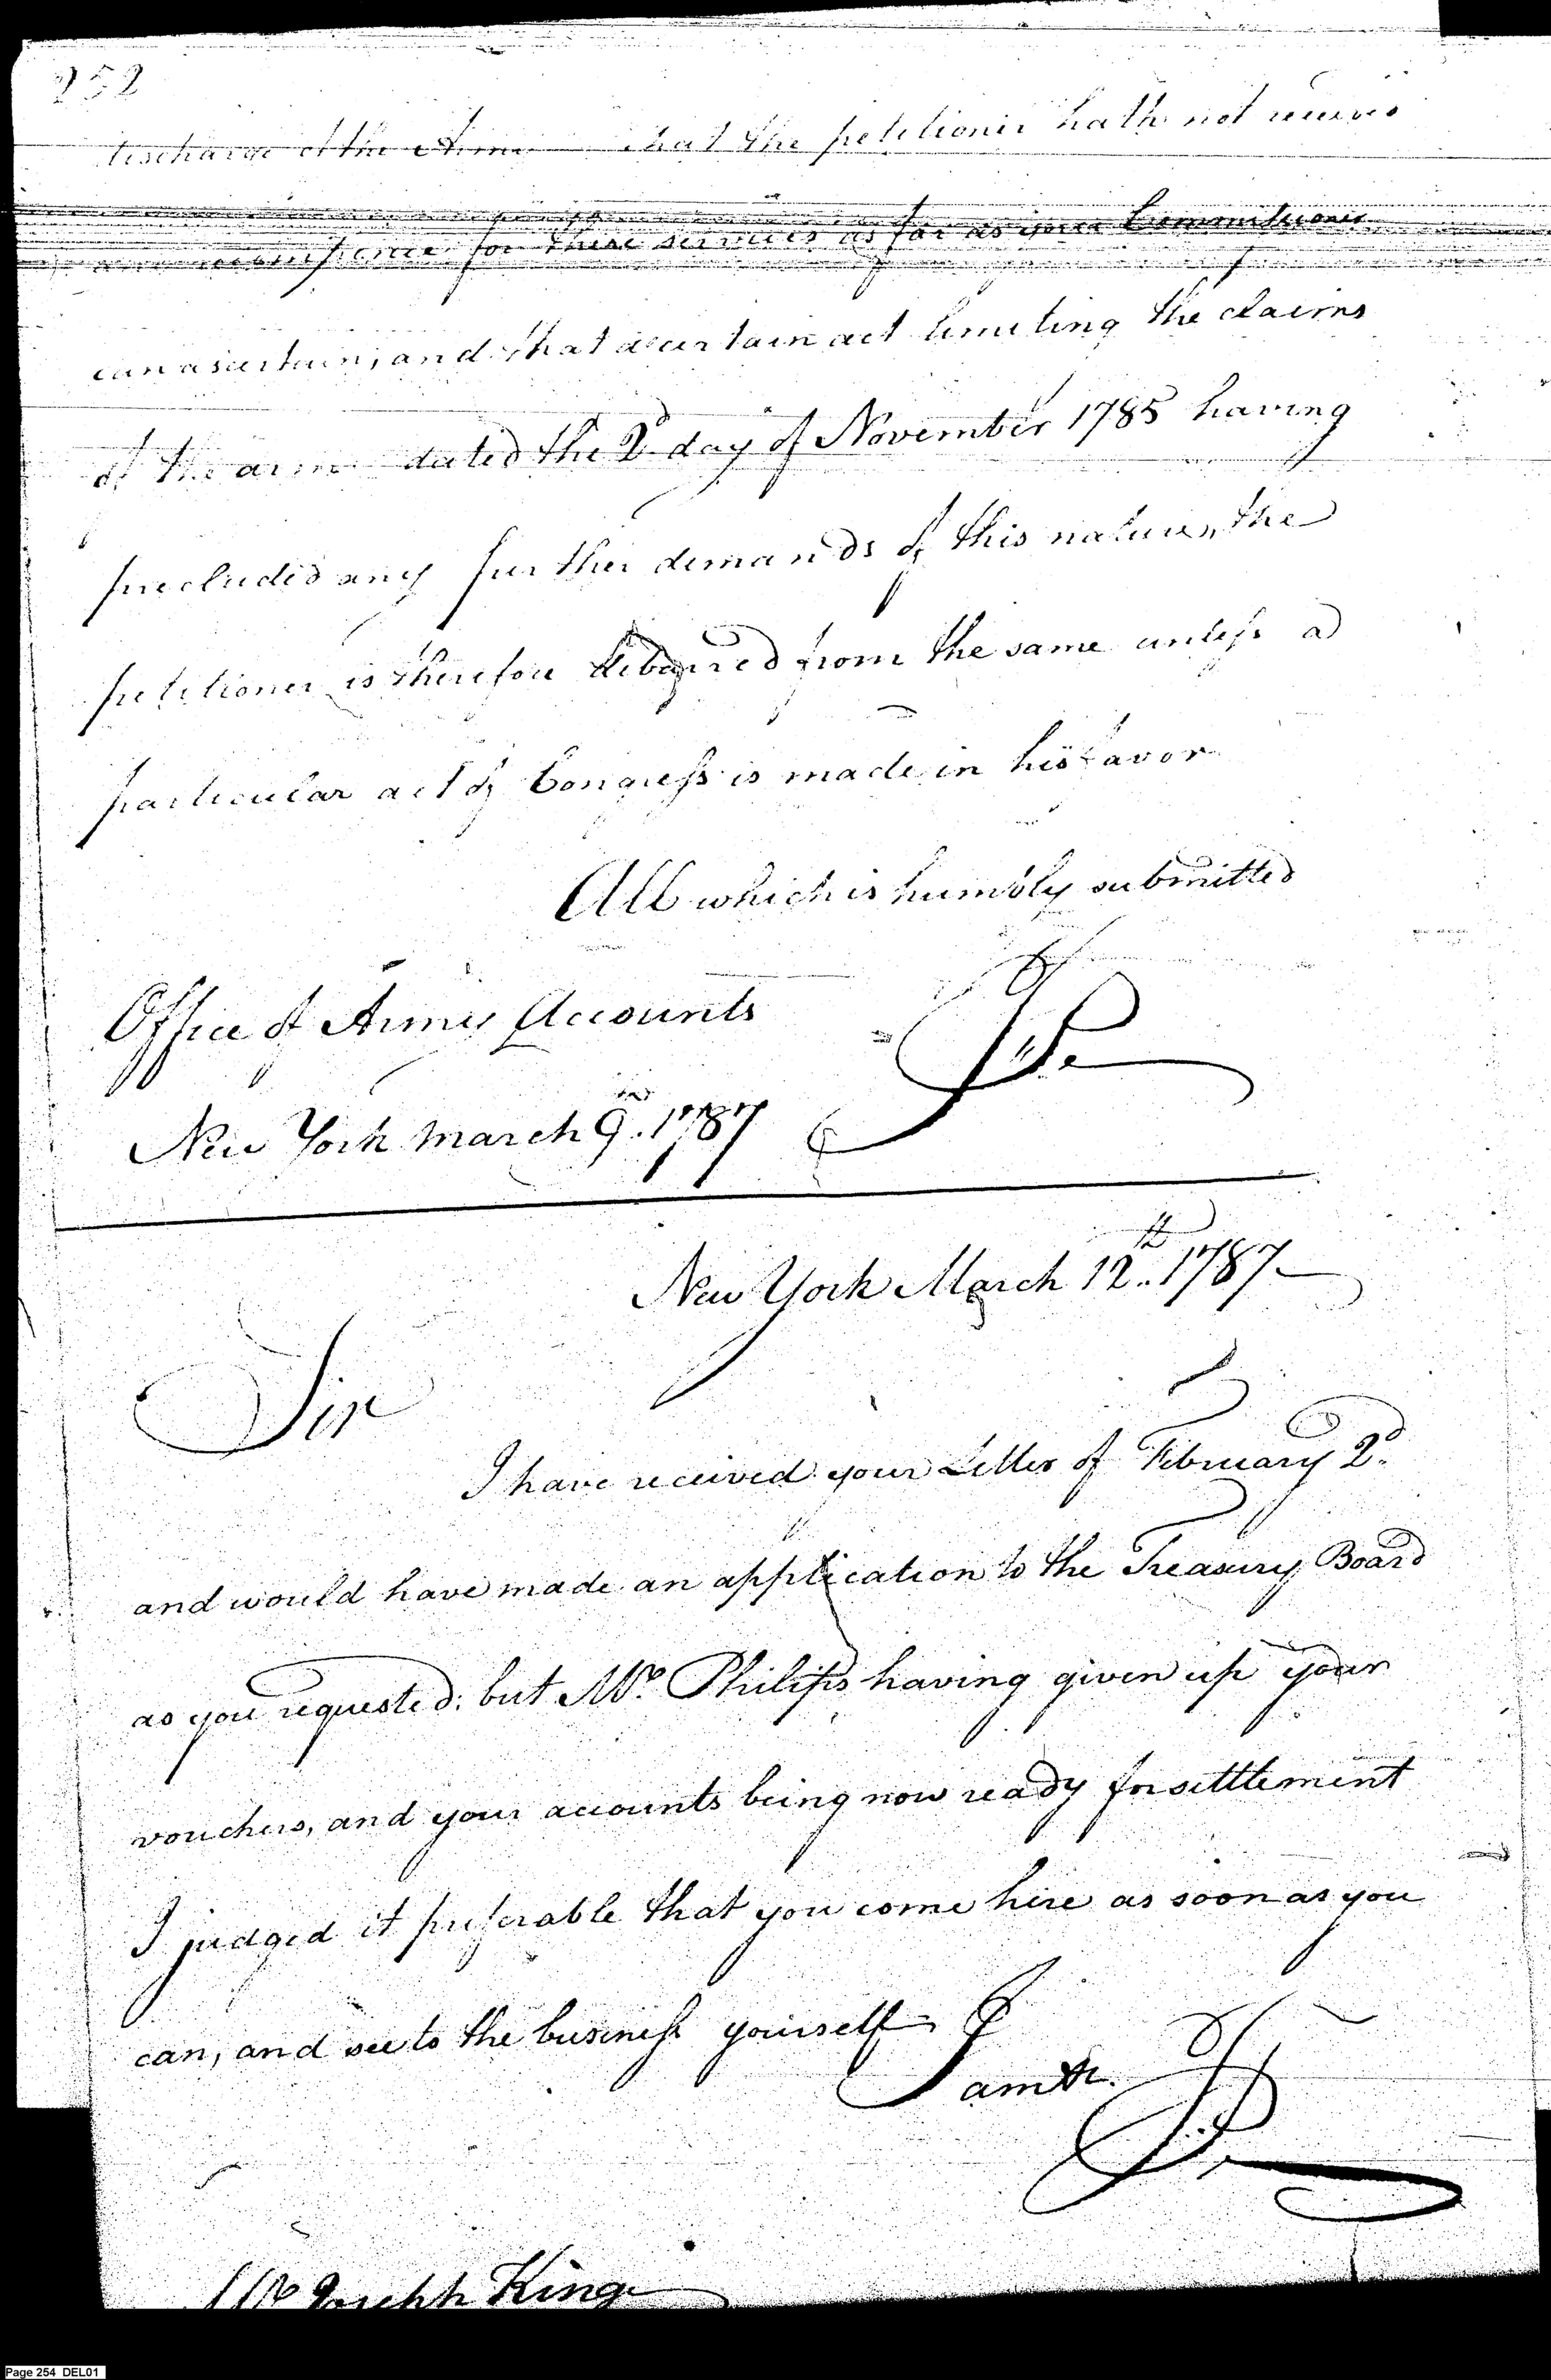 252
discharge of the Army that the petitioner hath not received
any recompence for these services as far as your Commissioner
can ascertain, and that a certain act limiting the claims
of the army dated the 2d day of November 1785 having
precluded any further demands of this nature, the
petitioner is therefore debarred from the same unless a
particular act of Congress is made in his favor
All which is humbly submitted
Office of Army Accounts
New York March 9. 1787
New York March 12th 1787
Sir
I have received your Letter of February 2d
and would have made an application to the Treasury Board
as you requested: but Mr Philips having given up your
vouchers, and your accounts being now ready for settlement
I judged it preferable that you come here as soon as you
can, and see to the business yourself
I am &c.
Mr Joseph King
Page 254 DEL01